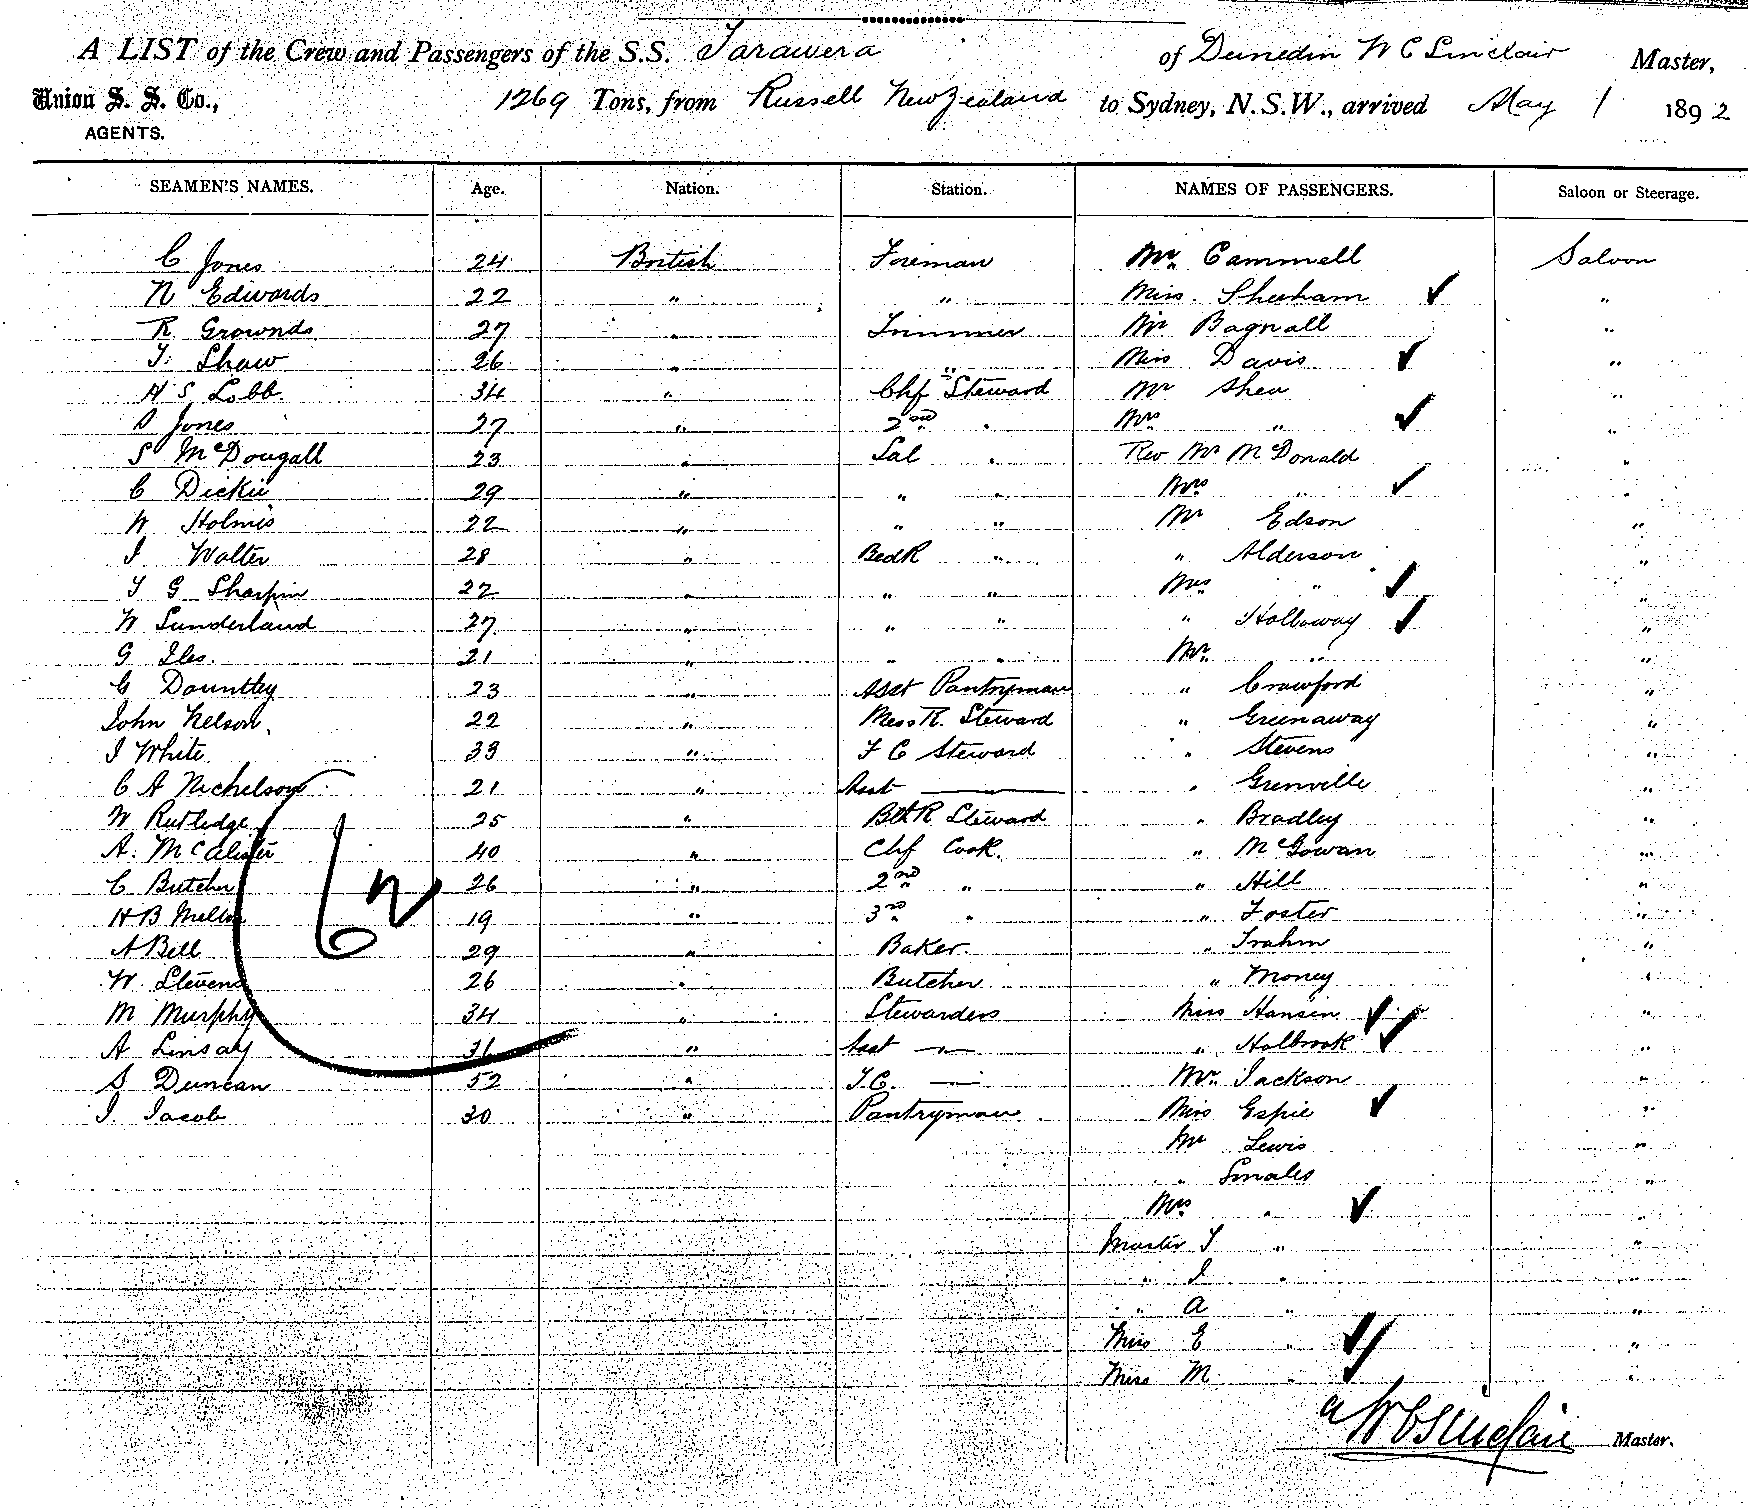 A LIST of the Crew and Passengers of the S.S. Tarawera of Dunedin W C Sinclair Master,
Union S. S. Co., 1269 Tons, from Russell New Zealand to Sydney, N.S.W., arrived May 1 1892
AGENTS.
SEAMEN'S NAMES. Age. Nation. Station. NAMES OF PASSENGERS. Saloon or Steerage.
C Jones 24 British Foreman Mr Cammell Saloon
N Edwards 22 " " Miss Sheeham ✓ "
R Grownds 27 " Trimmer Mr Bagnall "
T. Shaw 26 " " Miss Davis ✓ "
H S Lobb 34 " Chf Steward Mr Shea "
S Jones 27 " 2nd " Mrs " ✓ "
S McDougall 23 " Sal " Rev Mr McDonald "
C Dickie 29 " " " Mrs " ✓ "
W Holmes 22 " " " Mr Edson "
J Walter 28 " BedR " " Alderson "
T G Sharpin 22 " " " Mrs " ✓ "
W Sunderland 27 " " " " Holloway ✓ "
G Iles 21 " " " Mr "  "
G Dountley 23 " Asst Pantryman " Crawford "
John Nelson 22 " Mess R. Steward " Greenaway "
J White 33 " F C Steward " Stevens "
C A Nichelson 21 " Asst — " — " Grenville "
W Rutledge 25 " BthR Steward " Bradley "
A. McAlister 40 " Chf Cook. " McGowan "
C Butcher 26 " 2nd " " Hill "
H B 19 " 3rd " " Foster "
A Bell 29 " Baker " Trahm "
W Stevens 26 " Butcher " Money "
M Murphy 34 " Stewardess Miss Hansen ✓ "
A Linsay 31 " Asst — " — " Holbrook ✓ "
S Duncan 52 " T.C. — " — Mr Jackson "
J. Jacob 30 " Pantryman Miss Espie ✓ "
Mr Lewis "
" Smales "
Mrs " ✓ "
Master T " "
" J " "
" A " "
Miss E " ✓ "
Miss M " ✓ "
W C Sinclair Master.